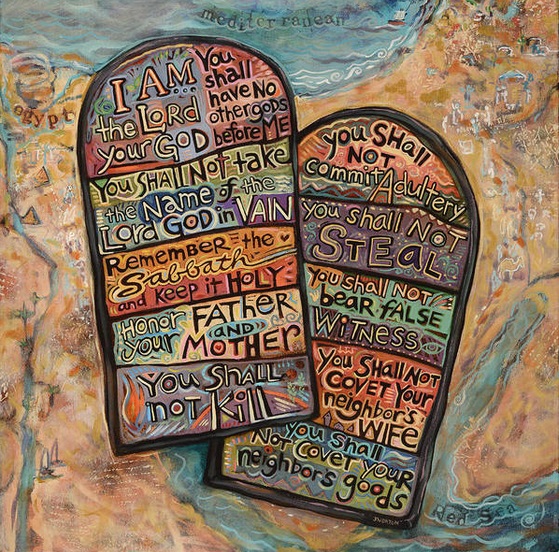 mediterranean
egypt
I AM
the Lord
your GOD
You
shall
have No
other gods
before ME
You SHALL Not take
the Name of the
Lord GOD in VAIN
Remember the
Sabbath
and keep it HOLY
Honor FATHER
your AND
MOTHER
YOU SHALL
not Kill
you SHall
NOT
commit Adultery
you shall NOT
STEAL
you shall NOT
bear FALSE
WITNESS
You SHALL NOT
COVET YOUR
neighbor's
WIFE
you shall
Not Covet YOUR
neighbor's goods
Red Sea